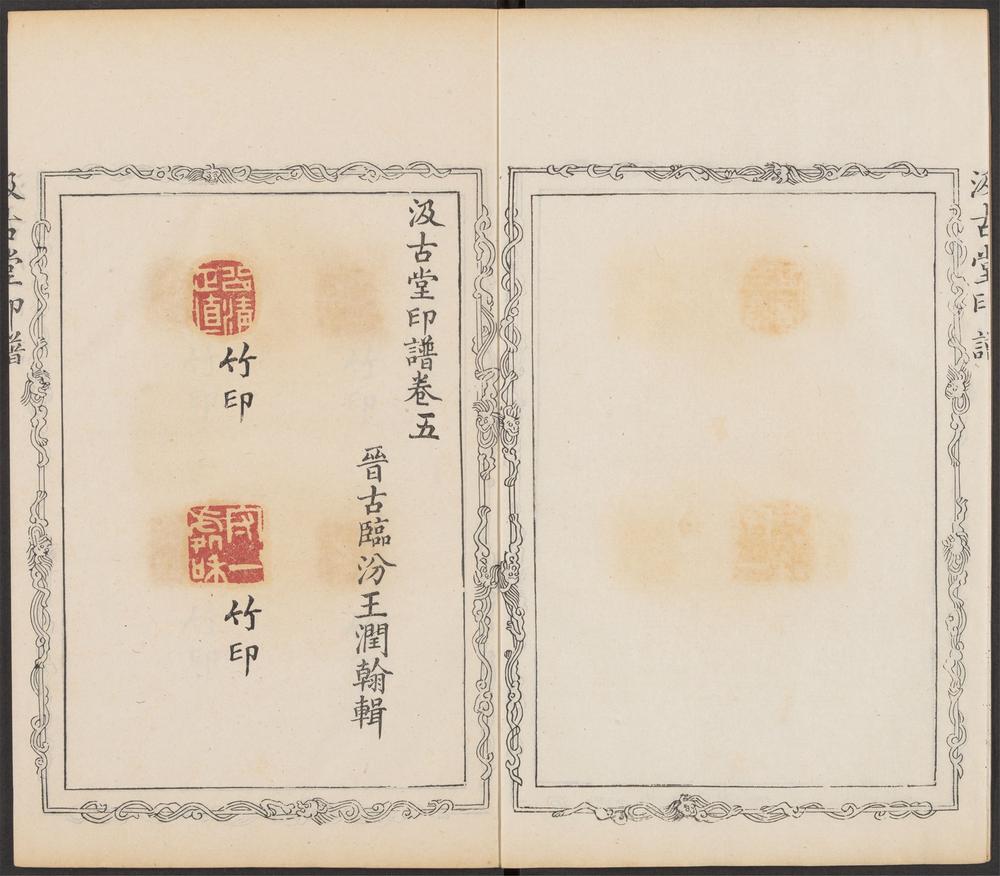 汲古堂印譜
汲古堂印譜卷五
晉古臨汾王潤翰輯
公清正直
竹印
竹印
汲古堂印譜